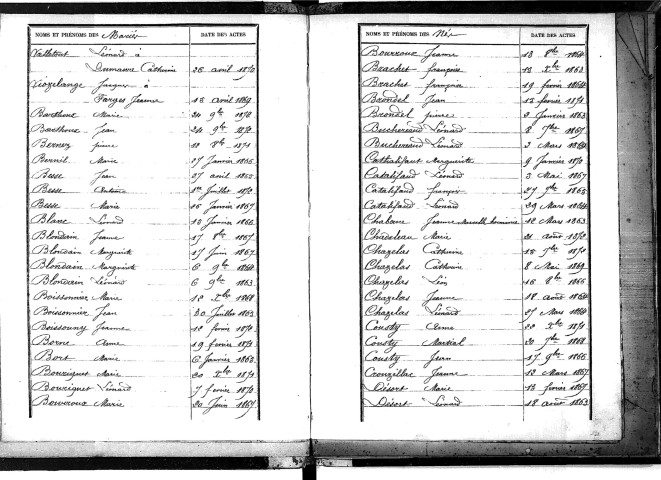 NOMS ET PRÉNOMS DES Mariés DATE DES ACTES
Léonard à
Dumaine Catherine 26 avril 1870
à
Farges Jeanne 13 avril 1869
Barthoux Marie 24 9bre 1870
Barthoux Jean 24 9bre 1870
Bernez pierre
Bernil Marie 27 Janvier 1866
Besse Jean 27 avril 1863
Besse 1er Juillet
Besse Marie 16 Janvier 1867
Blanc Léonard 13 Janvier 1866
Blondain Jeanne 17 8bre 1867
Blondain Marguerite 17 Juin 1867
Blondain Marguerite 6 9bre 1864
Blondain Léonard 6 9bre 1863
Boissonnier Marie 12 Xbre 1868
Boissonnier Jean 20 Juillet 1863
Boissonny Jeanne 12 février
Borne Anne 19 février
Bort Marie 6 Janvier 1863
Bourziguet Marie 20 Xbre
Bourziguet Léonard 7 février 1870
Bouvroux Marie 20 Juin 1867
NOMS ET PRÉNOMS DES Nés DATE DES ACTES
Bourroux Jeanne 13 8bre 1864
Brachet françoise 13 Xbre 1863
Brachet 19 février 1864
Brondel Jean 13 février
Brondel pierre 3 Janvier 1863
Buchereaud Léonard 8 7bre 1867
Buchereaud Léonard 3 Mars 1864
Cathalifaut Marguerite 9 Janvier 1870
Catalifaud Léonard 3 Mai 1867
Catalifaud françois 27 9bre 1863
Catalifaud Léonard 29 Mars 1864
Chabane Jeanne 12 Mars 1863
Chadeleau Marie 21 août
Chazelas Catherine 15 7bre
Chazelas Catherine 8 Mai 1869
Chazelas Léon 16 8bre 1866
Chazelas Jeanne 18 août 1864
Chazelas Léonard 27 Mars 1864
Cousty Anne 22 Xbre
Cousty Martial 20 7bre 1868
Cousty Jean 17 9bre 1866
Crouzillac Jeanne 12 Mars 1867
Désort Marie 13 février 1867
Désort Léonard 18 août 1863